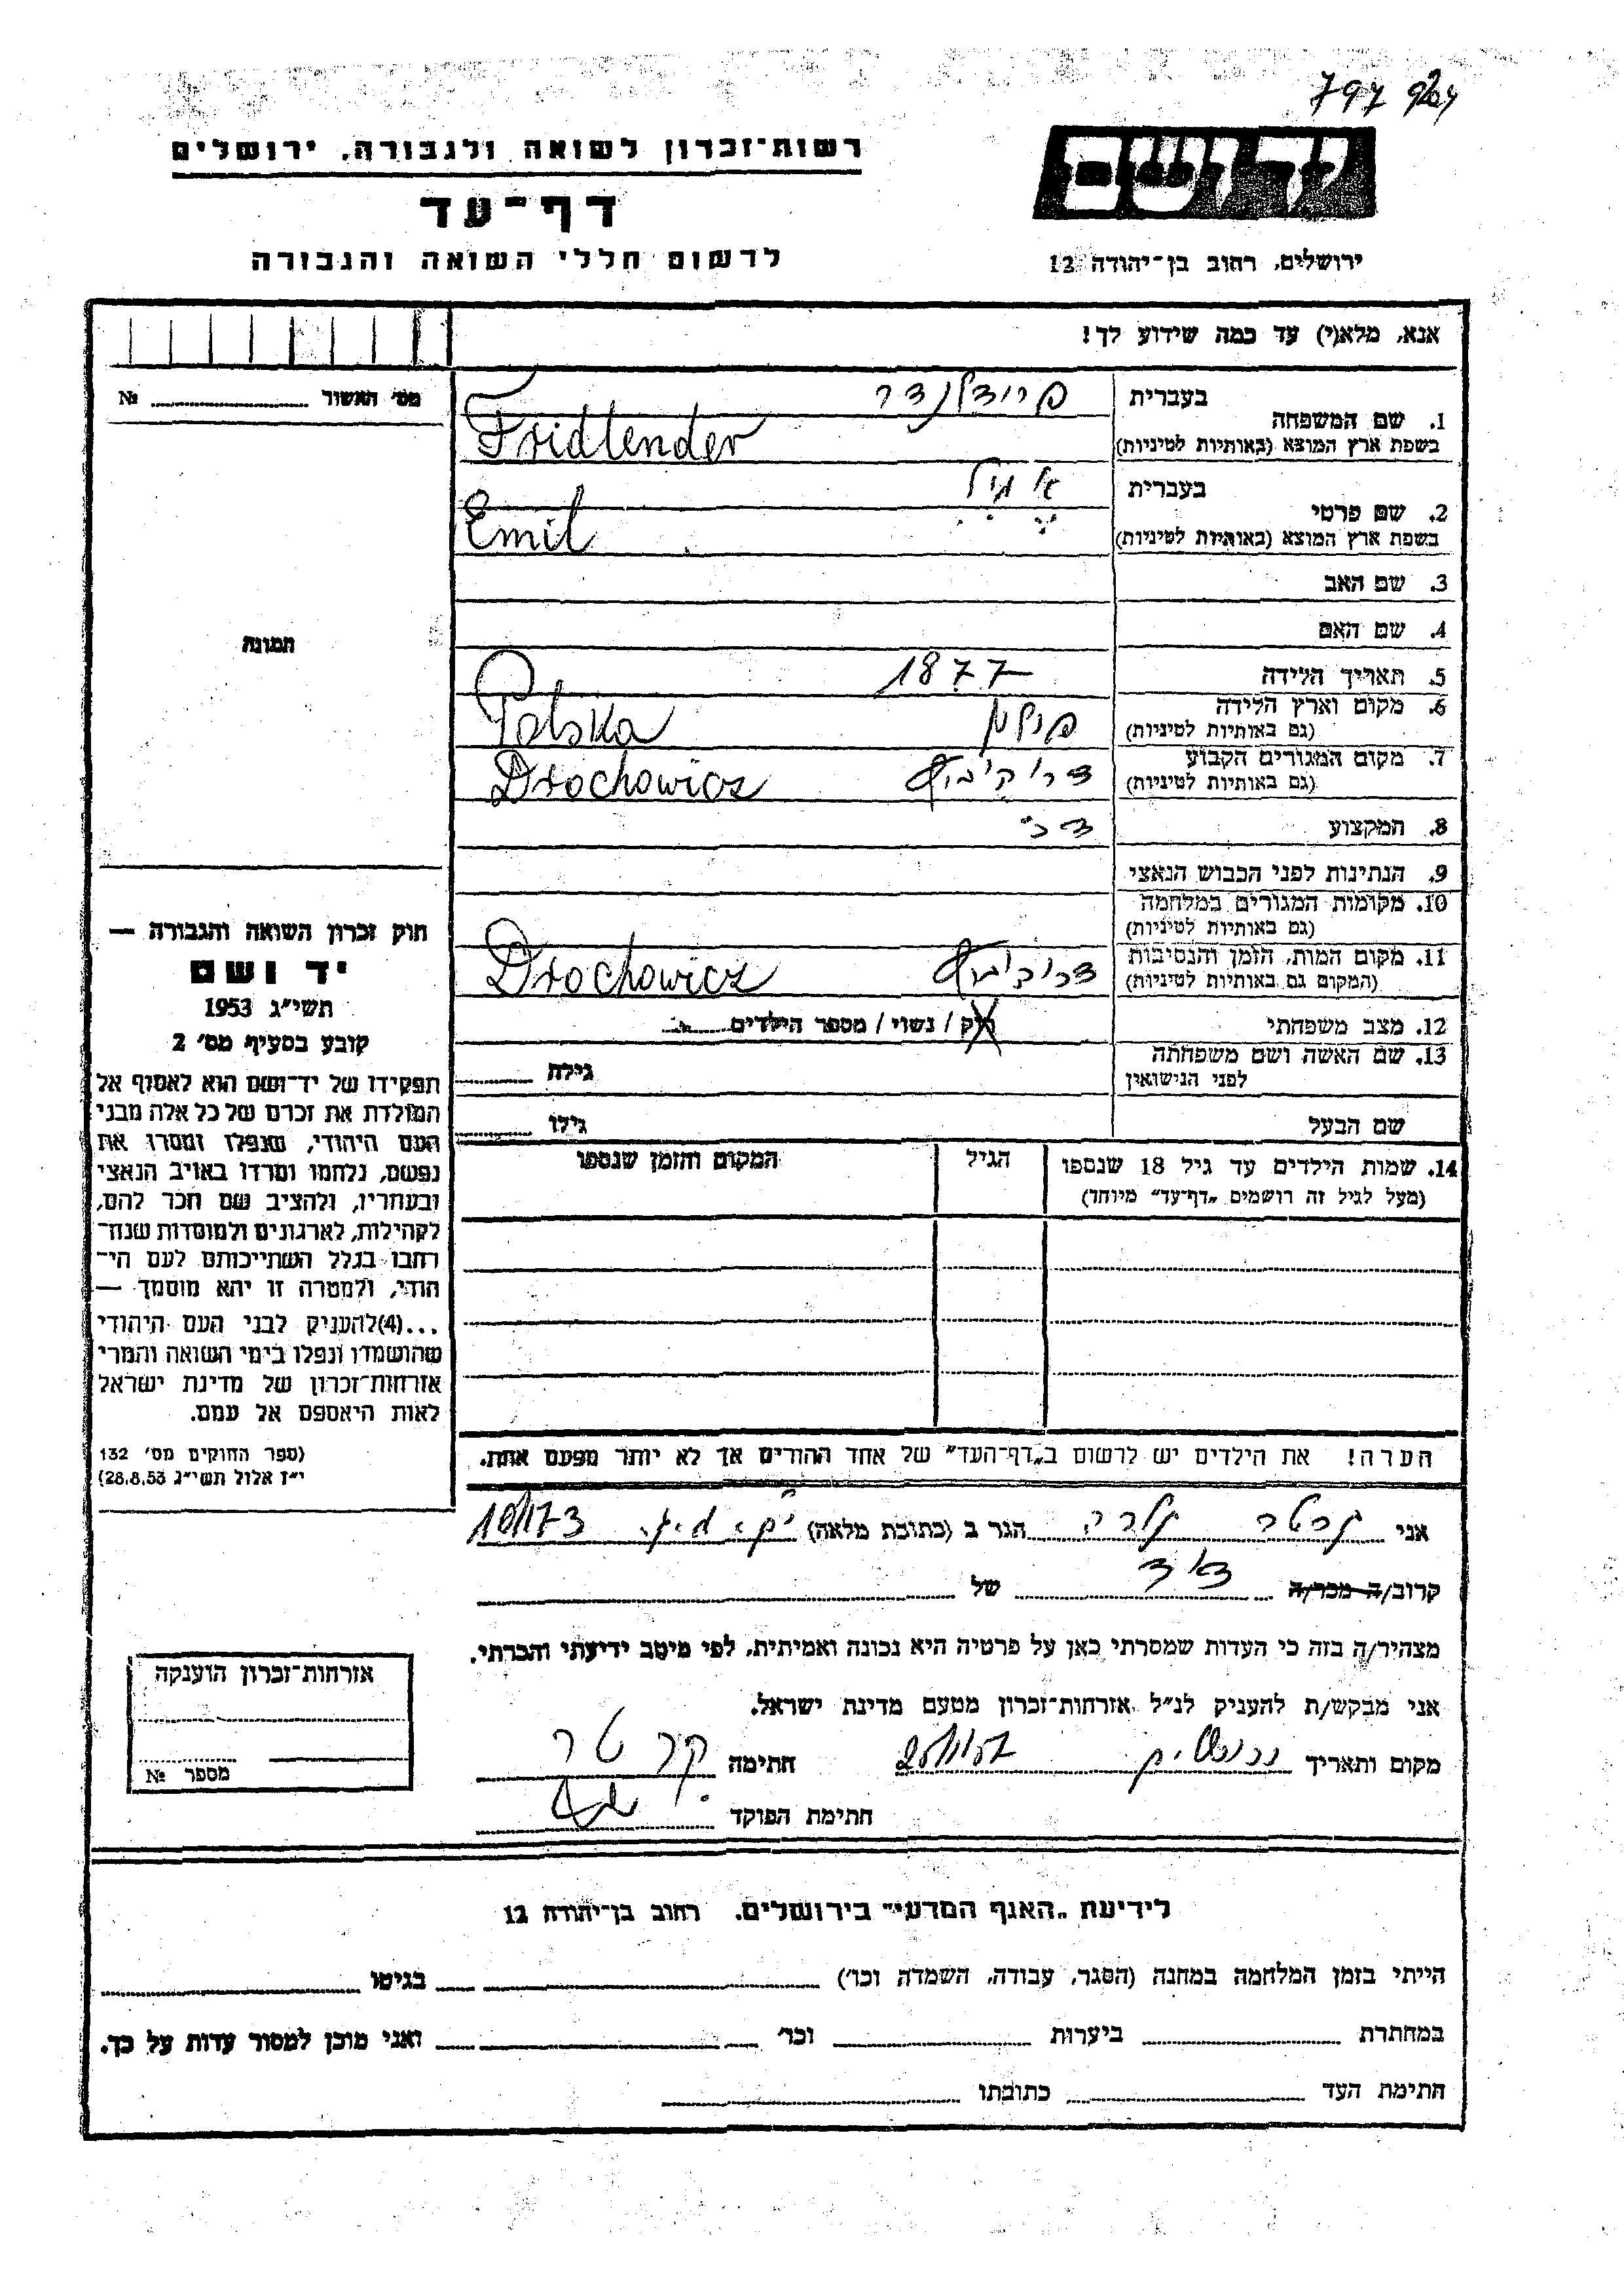 797
רשות־זכרון לשואה ולגבורה, ירושלים
דף־עד
לרשום חללי השואה והגבורה
יד ושם
ירושלים, רחוב בן־יהודה 12
אנא, מלא(י) עד כמה שידוע לך!
מס' האשור № 
1. שם המשפחה
בעברית פרידלנדר
בשפת ארץ המוצא (באותיות לטיניות) Fridlender
2. שם פרטי
בעברית אמיל
בשפת ארץ המוצא (באותיות לטיניות) Emil
3. שם האב
4. שם האם
תמונה
5. תאריך הלידה 1877
6. מקום וארץ הלידה
(גם באותיות לטיניות) פולין Polska
7. מקום המגורים הקבוע
(גם באותיות לטיניות) Drochowicz
8. המקצוע
9. הנתינות לפני הכבוש הנאצי
10. מקומות המגורים במלחמה
(גם באותיות לטיניות)
11. מקום המות, הזמן והנסיבות
(המקום גם באותיות לטיניות) Drochowicz
12. מצב משפחתי רוק / נשוי / מספר הילדים
13. שם האשה ושם משפחתה
לפני הנישואין גילה
שם הבעל גילו
14. שמות הילדים עד גיל 18 שנספו הגיל המקום והזמן שנספו
(מעל לגיל זה רושמים „דף־עד" מיוחד)
חוק זכרון השואה והגבורה —
יד ושם
תשי"ג 1953
קובע בסעיף מס' 2
תפקידו של יד־ושם הוא לאסוף אל
המולדת את זכרם של כל אלה מבני
העם היהודי, שנפלו ומסרו את
נפשם, נלחמו ומרדו באויב הנאצי
ובעוזריו, ולהציב שם וזכר להם,
לקהילות, לארגונים ולמוסדות שנח־
רבו בגלל השתייכותם לעם הי־
הודי, ולמטרה זו יהא מוסמך —
...(4)להעניק לבני העם היהודי
שהושמדו ונפלו בימי השואה והמרי
אזרחות־זכרון של מדינת ישראל
לאות היאספם אל עמם.
(ספר החוקים מס' 132
י"ז אלול תשי"ג 28.8.53)
הערה! את הילדים יש לרשום ב„דף־העד" של אחד ההורים אך לא יותר מפעם אחת.
אני הגר ב (כתובת מלאה)
קרוב/ה מכר/ה דוד של
מצהיר/ה בזה כי העדות שמסרתי כאן על פרטיה היא נכונה ואמיתית, לפי מיטב ידיעתי והכרתי.
אני מבקש/ת להעניק לנ"ל אזרחות־זכרון מטעם מדינת ישראל.
מקום ותאריך חתימה קרטר
חתימת הפוקד
אזרחות־זכרון הוענקה
מספר №
לידיעת „האגף המדעי" בירושלים, רחוב בן־יהודה 12
הייתי בזמן המלחמה במחנה (הסגר, עבודה, השמדה וכו') בגיטו
במחתרת ביערות וכו' ואני מוכן למסור עדות על כך.
חתימת העד כתובתו